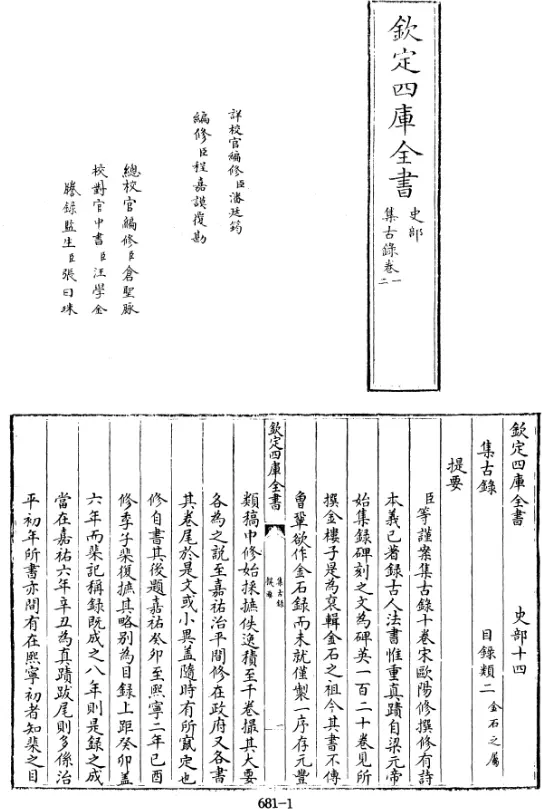 欽定四庫全書
史部
集古錄卷一
二
詳校官編修臣潘廷筠
編修臣程嘉謨覆勘
總校官編修臣倉聖脉
校對官中書臣汪學金
謄錄監生臣張曰珠
欽定四庫全書
史部十四
集古錄
目錄類二金石之屬
提要
臣等謹案集古錄十卷宋歐陽修撰修有詩
本義已著録古人法書惟重真蹟自梁元帝
始集錄碑刻之文為碑英一百二十卷見所
撰金樓子是為裒輯金石之祖今其書不傳
曾鞏欲作金石録而未就僅製一序存元豐
欽定四庫全書
集古錄
提要
一
類稿中修始採摭佚逸積至千卷撮其大要
各為之說至嘉祐治平間修在政府又各書
其卷尾於是文或小異蓋隨時有所竄定也
修自書其後題嘉祐癸卯至熙寧二年己酉
修季子棐復摭其略別為目録上距癸卯蓋
六年而棐記稱録既成之八年則是録之成
當在嘉祐六年辛丑為真蹟跋尾則多係治
平初年所書亦間有在熙寧初者知棐之目
681-1